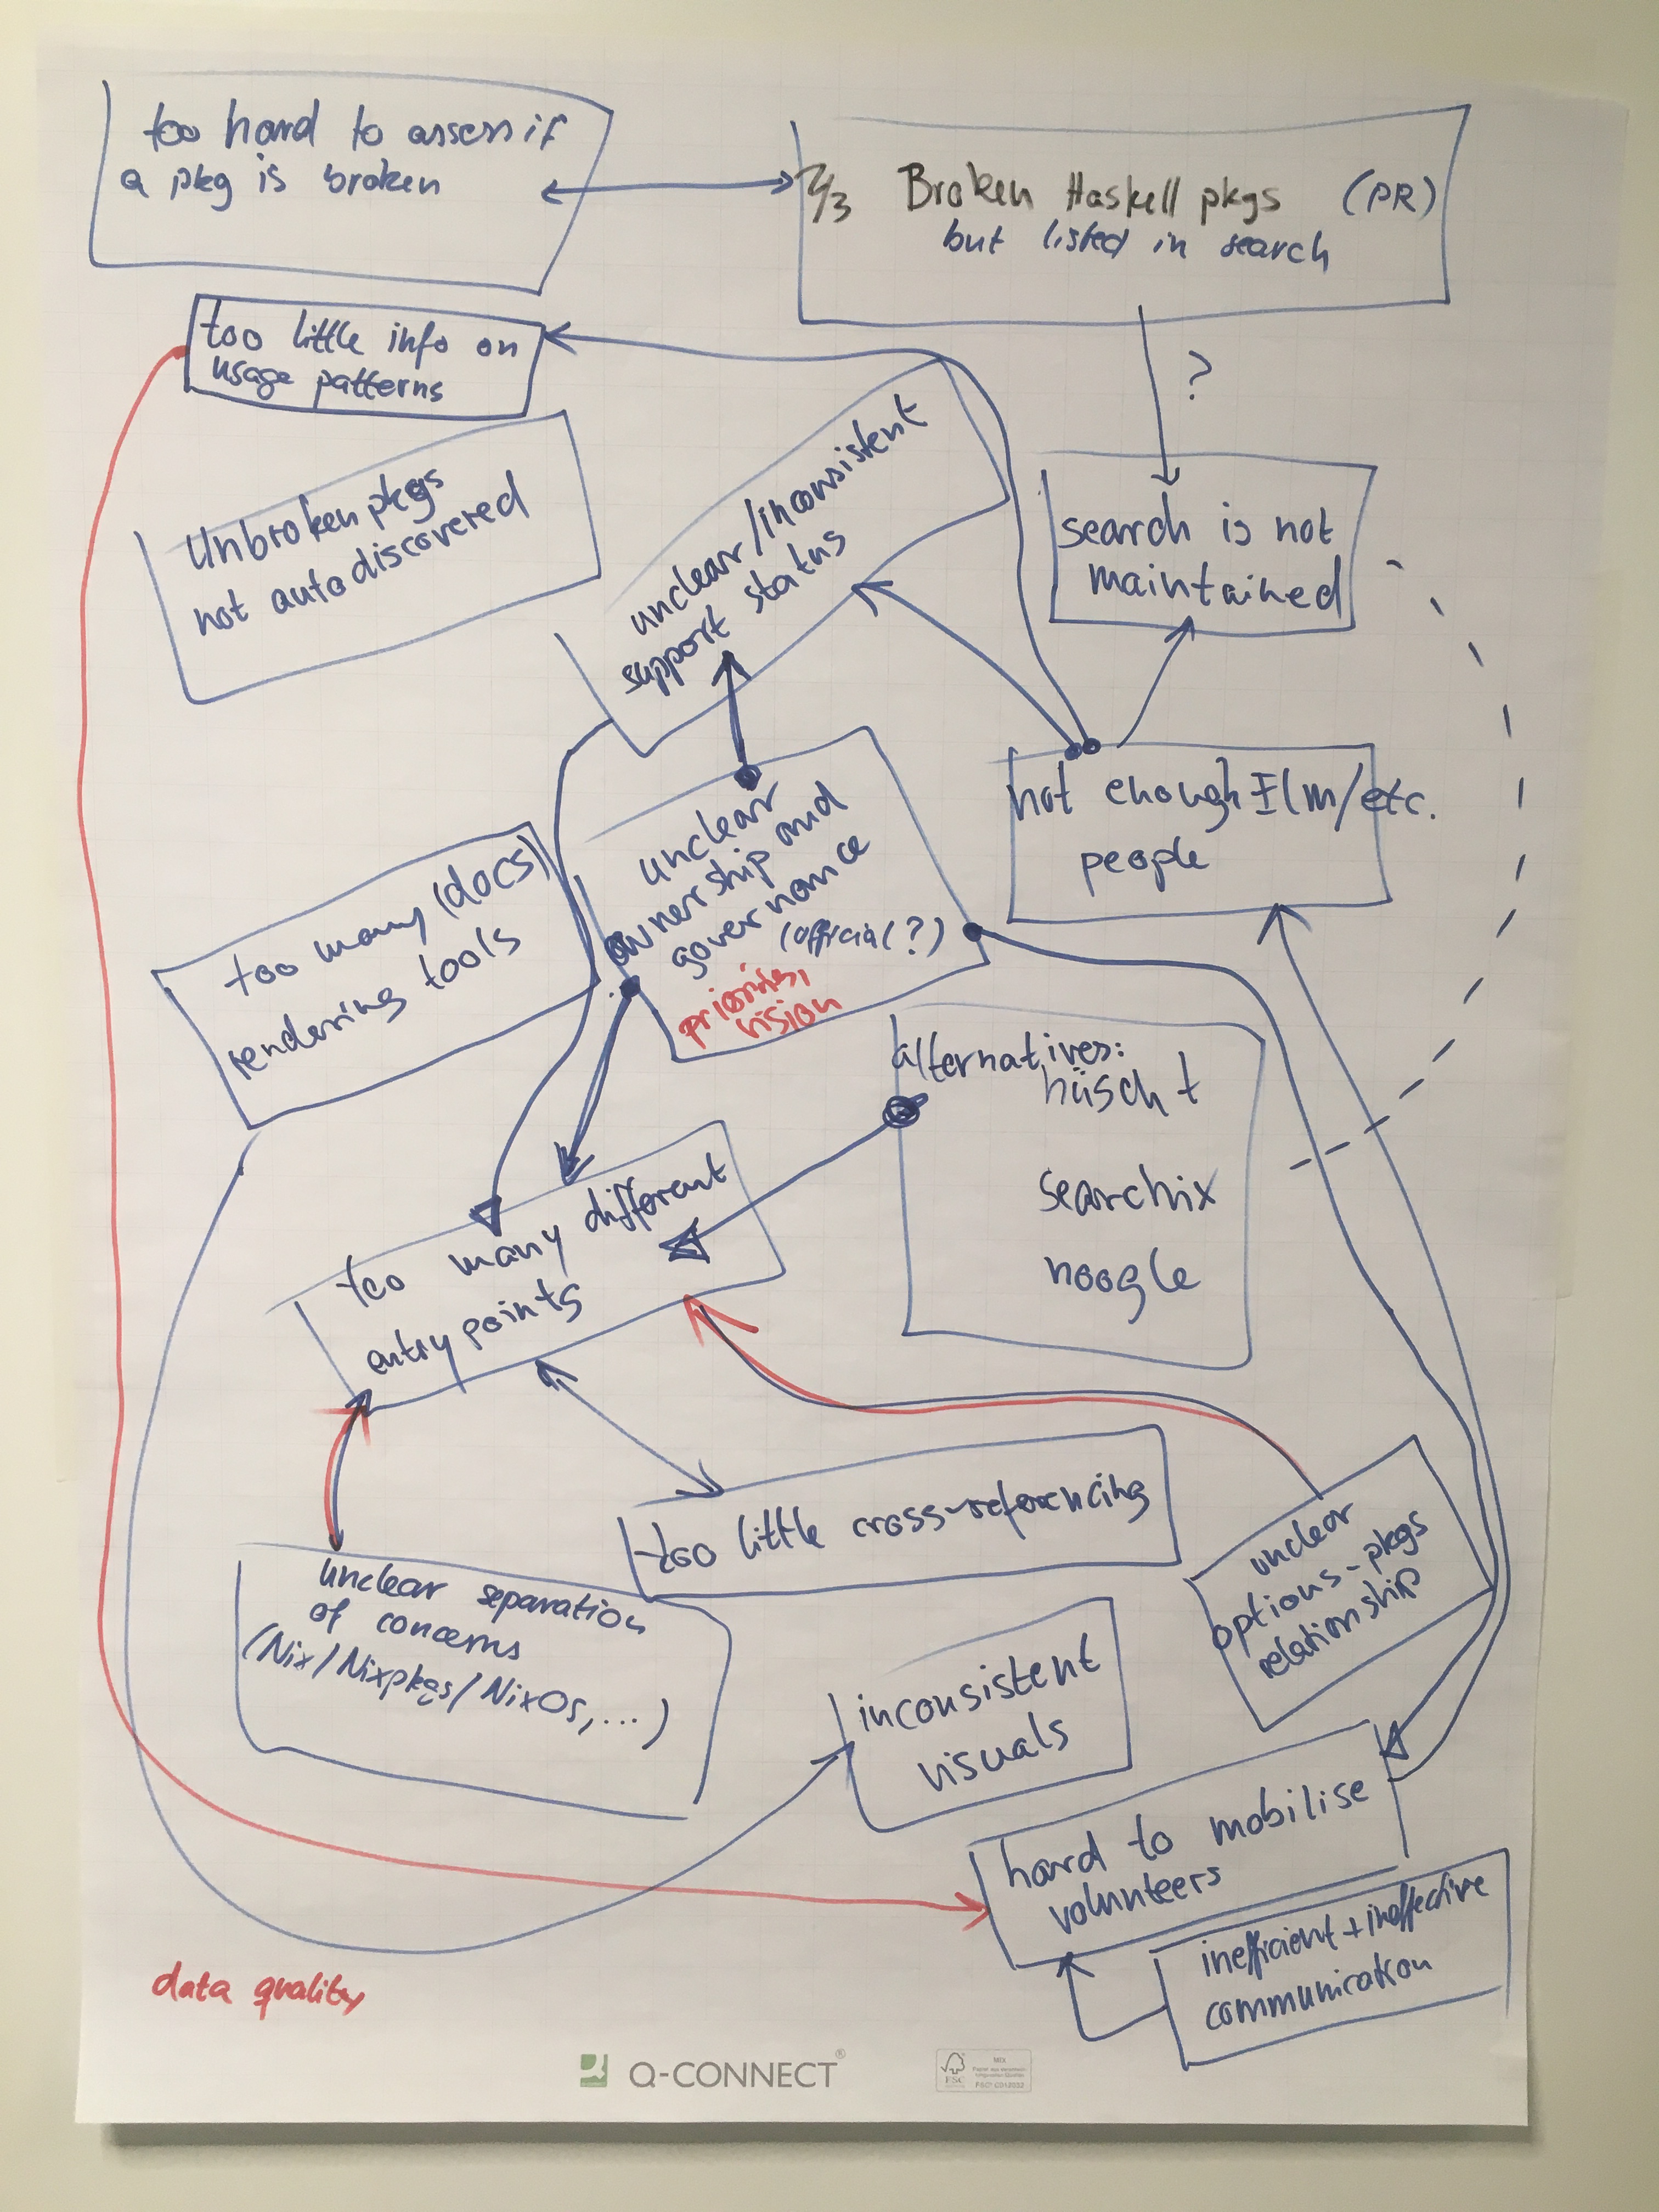 too hard to assess if
a pkg is broken
2/3 Broken Haskell pkgs (PR)
but listed in search
too little info on
usage patterns
?
Unbroken pkgs
not autodiscovered
unclear/inconsistent
support status
search is not
maintained
not enough Elm/etc.
people
unclear
ownership and
governance
(official?)
priorities,
vision
too many (docs)
rendering tools
alternatives:
hüscht
searchix
noogle
too many different
entry points
too little cross-referencing
unclear
options-pkgs
relationship
unclear separation
of concerns
(Nix/Nixpkgs/NixOs,...)
inconsistent
visuals
hard to mobilise
volunteers
inefficient + ineffective
communication
data quality
Q-CONNECT®
FSC
MIX